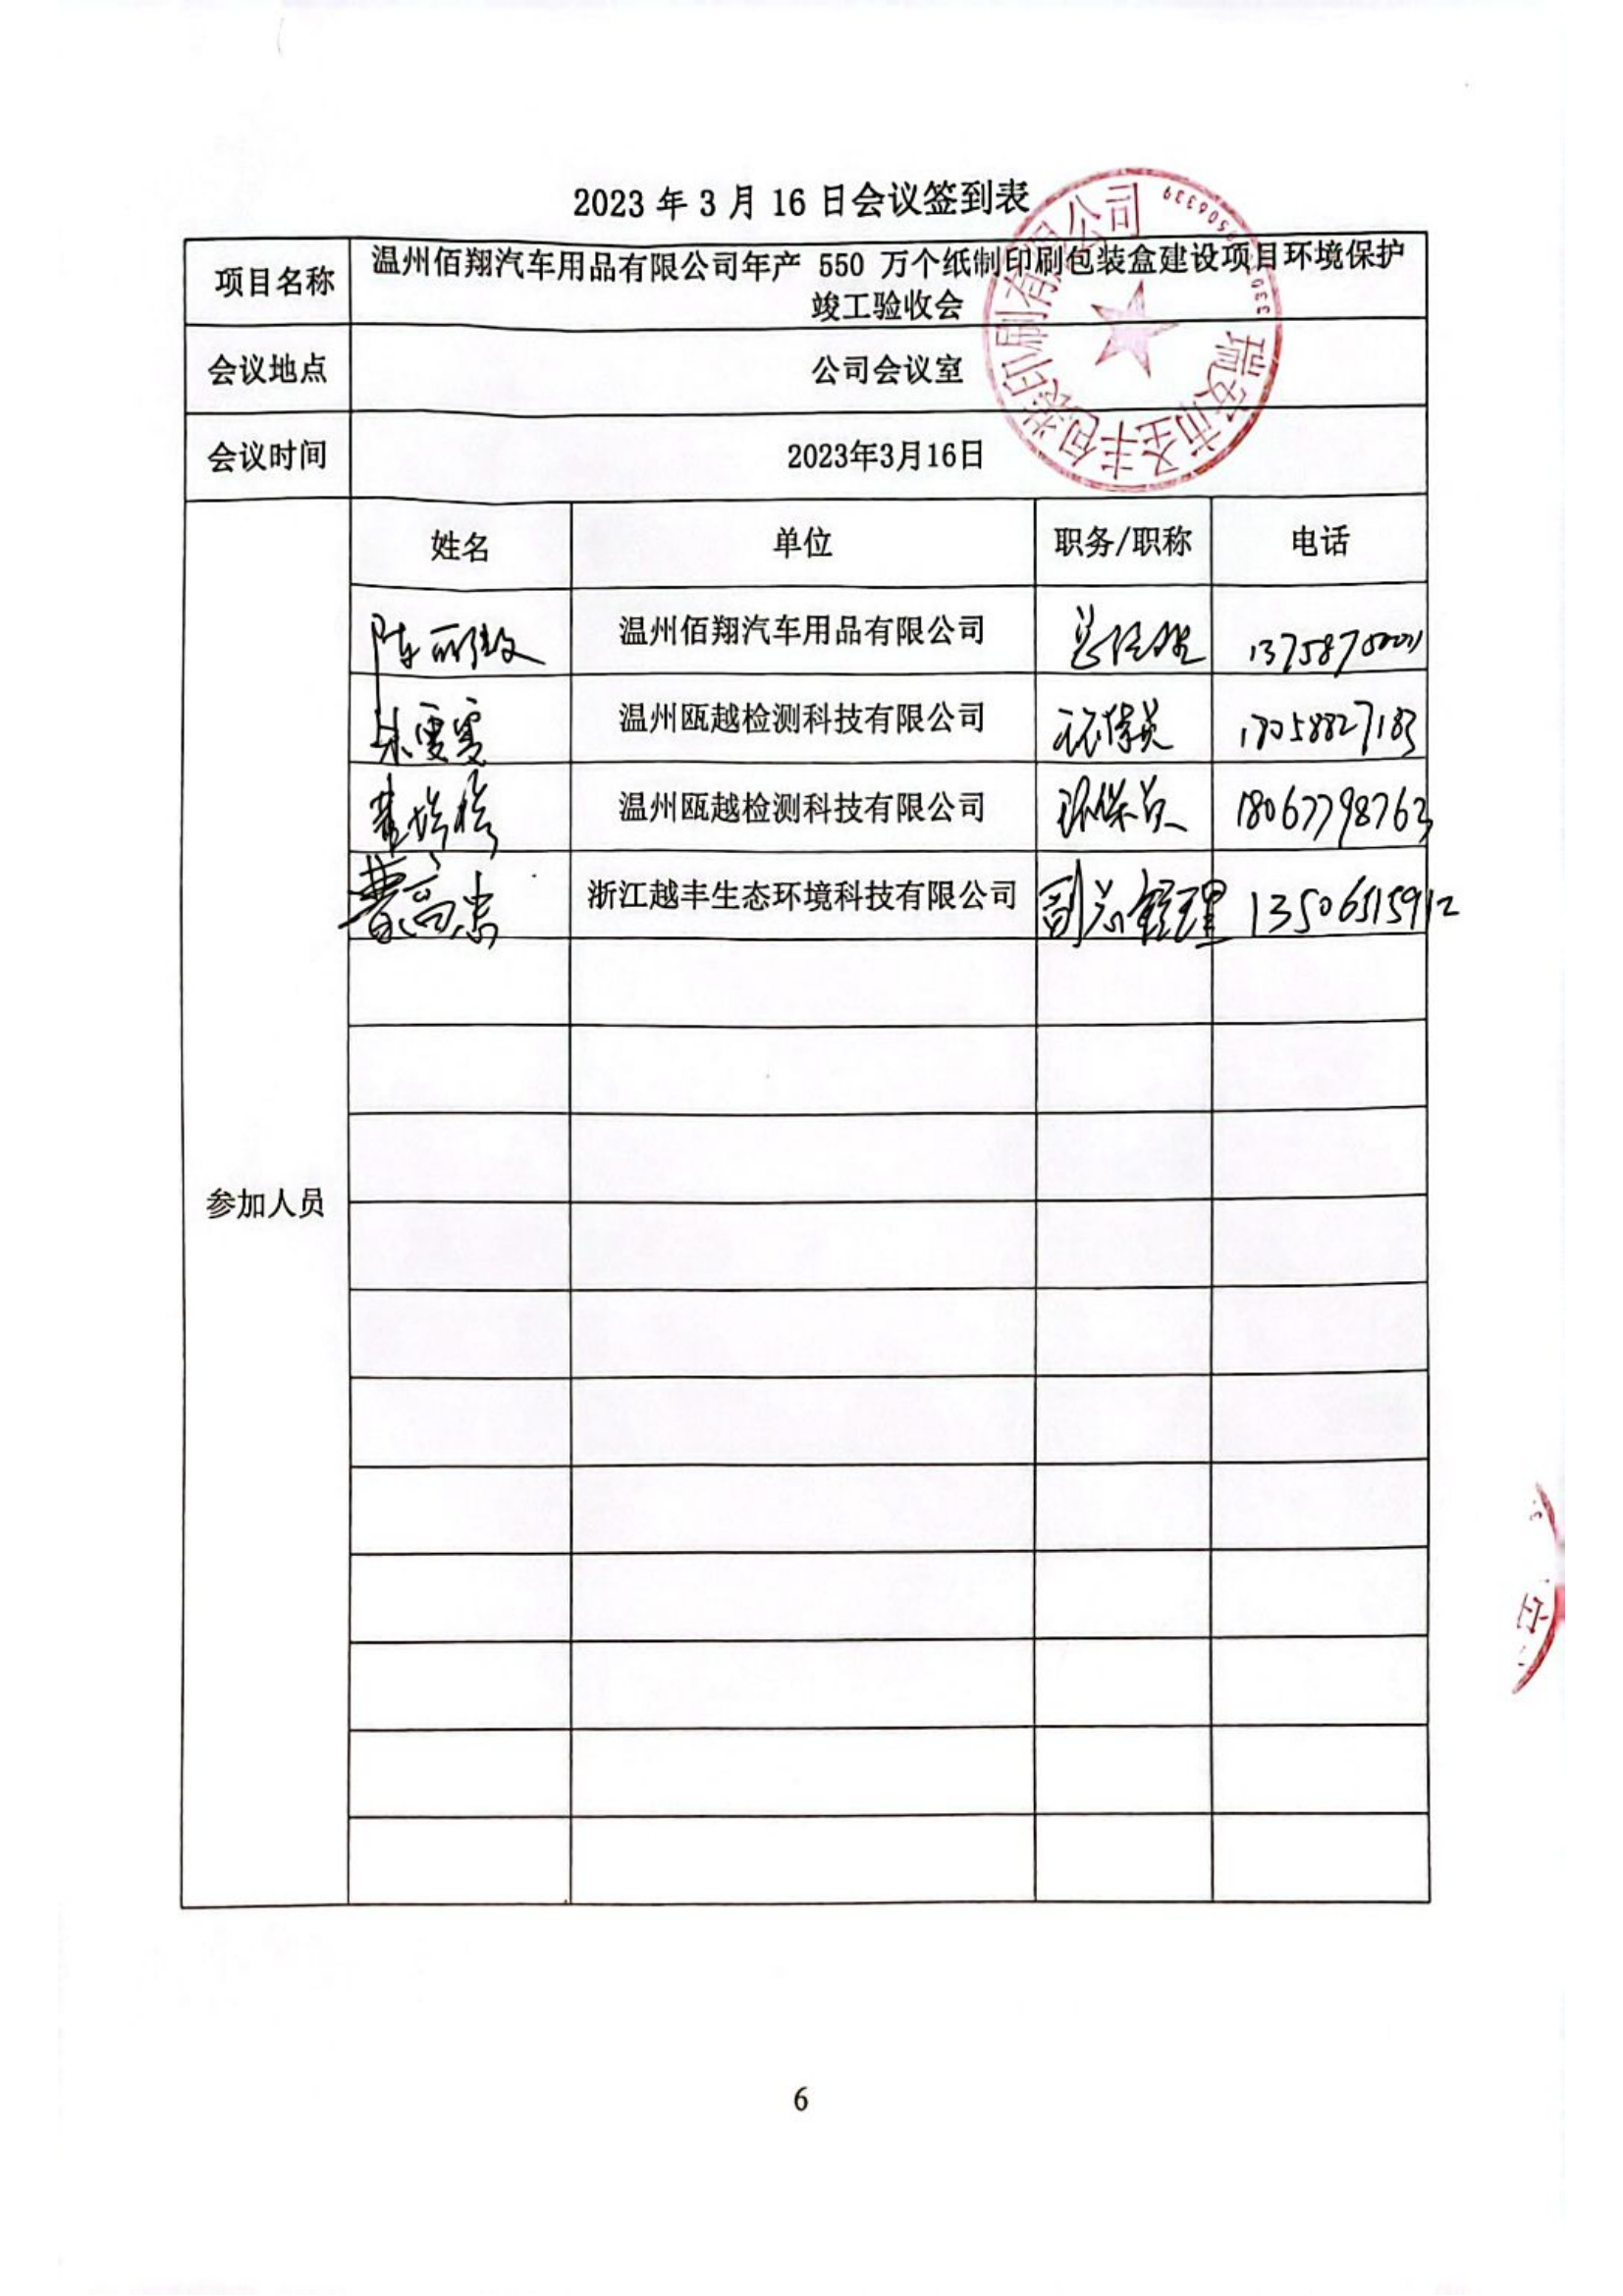 2023 年 3 月 16 日会议签到表
项目名称
温州佰翔汽车用品有限公司年产 550 万个纸制印刷包装盒建设项目环境保护
竣工验收会
会议地点
公司会议室
会议时间
2023年3月16日
瑞安市全丰包装印刷有限公司
参加人员
姓名 单位 职务/职称 电话
温州佰翔汽车用品有限公司 总经理
温州瓯越检测科技有限公司
温州瓯越检测科技有限公司 环保员 18067798763
曹高忠 浙江越丰生态环境科技有限公司 副总经理 13506515912
6